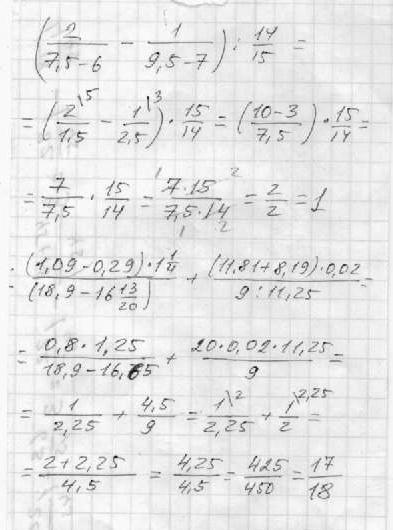 (2/(7,5-6) - 1/(9,5-7)) : 14/15 =
= (2\5/1,5 - 1\3/2,5) · 15/14 = ((10-3)/7,5) · 15/14 =
= 7/7,5 · 15/14 = (7·15)/(7,5·14) = 2/2 = 1
= ((1,09-0,29)·1 1/4)/(18,9-16 13/20) + ((11,81+8,19)·0,02)/(9:11,25) =
= (0,8·1,25)/(18,9-16,65) + (20·0,02·11,25)/9 =
= 1/2,25 + 4,5/9 = 1\2/2,25 + 1\2,25/2 =
= (2+2,25)/4,5 = 4,25/4,5 = 425/450 = 17/18